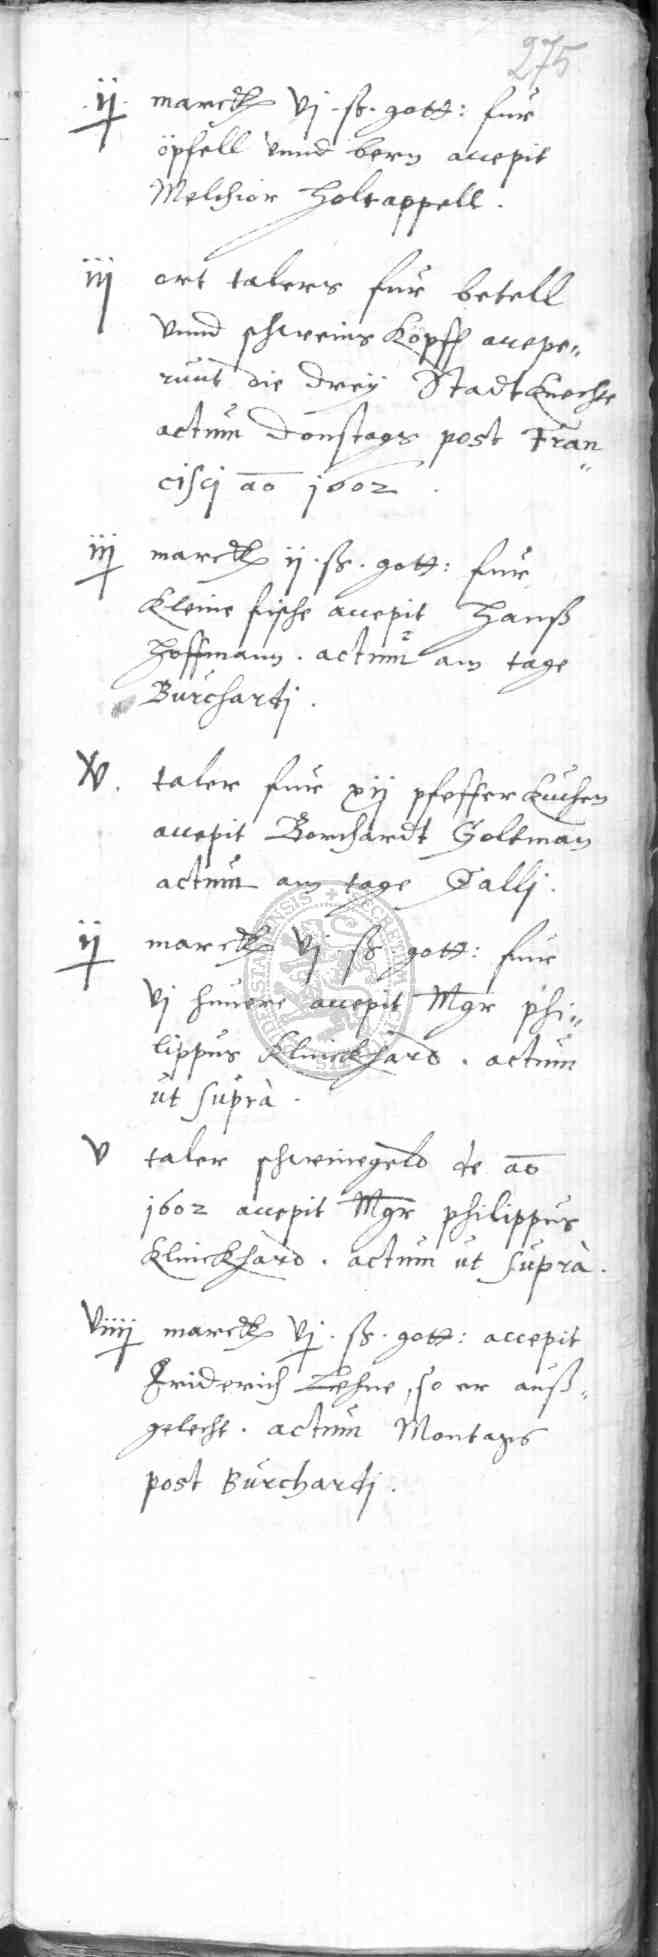 275
.ij. marck vj. ß. gott: fur
öpfell vnnd bern accepit
Melchior Holtzappell.
iij ort talers fur betell
vnnd schweins Köpff accepe„
runt die drey Stadtknechte
actum Donstags post Fran„
cisci ao 1602.
iij marck ij. ß. gott: fur
Kleine fische accepit Hanß
Hoffmann. actum am tage
Burchardj.
xv. taler fur xij pfefferkuchen
accepit Borchardt Goltman
actum am tage Gallj.
ij marck vj ß gott: fur
vj hunere accepit Mgr Phi„
lippus Klinckhard. actum
ut supra.
v taler schweinegeld de ao
1602 accepit Mgr Philippus
Klinckhard. actum ut supra.
viiij marck vj. ß. gott: accepit
Friderich Lehne, so er auß„
gelecht. actum Montags
post Burchardj.